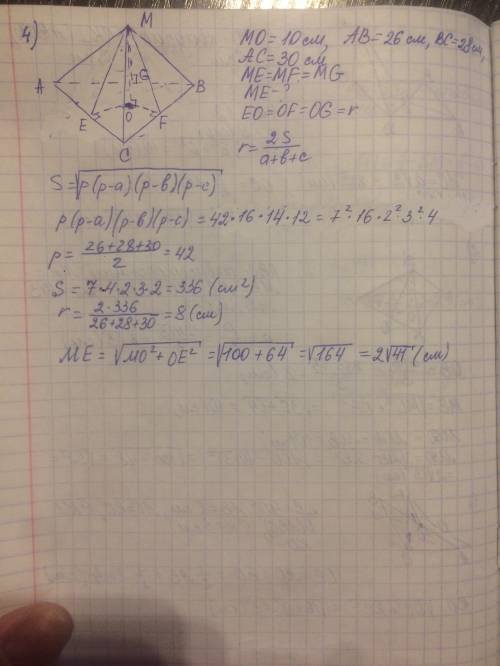 4)
M
A
G
B
E
O
F
C
MO = 10 см, AB = 26 см, BC = 28 см,
AC = 30 см
ME = MF = MG
ME - ?
EO = OF = OG = r
r = 2S / a+b+c
S = √p(p-a)(p-b)(p-c)
p(p-a)(p-b)(p-c) = 42·16·14·12 = 7²·16·2²·3²·4
p = 26+28+30 / 2 = 42
S = 7·4·2·3·2 = 336 (см²)
r = 2·336 / 26+28+30 = 8 (см)
ME = √MO²+OE² = √100+64 = √164 = 2√41 (см)